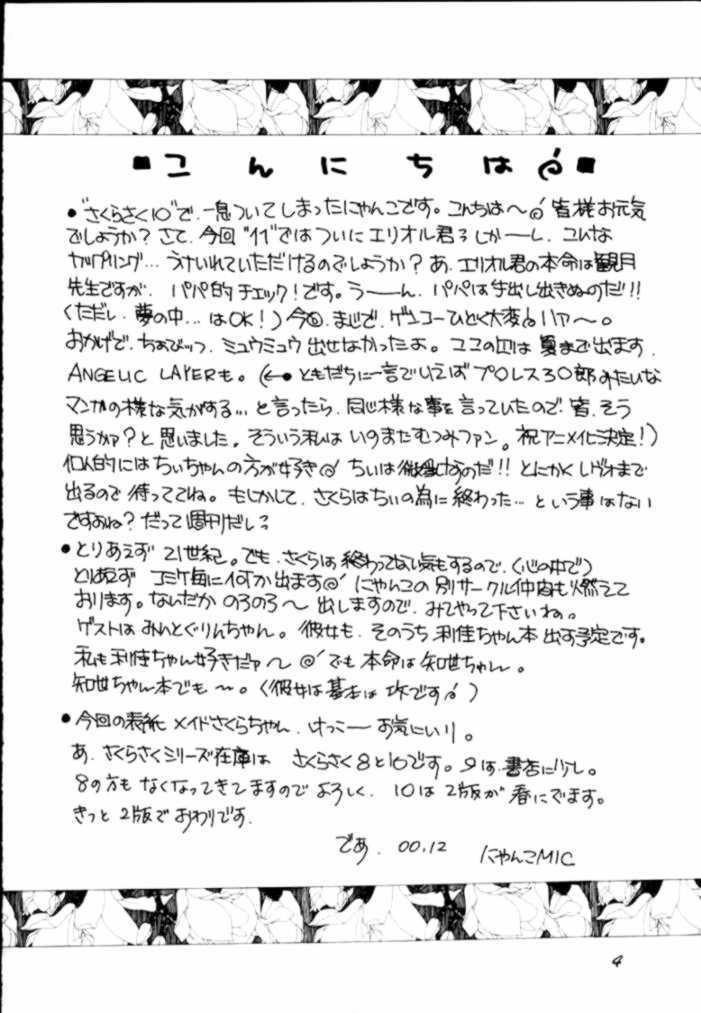 ■こんにちは■
●"さくらさく10"で、一息ついてしまったにゃんこです。こんちは〜 皆様お元気
でしょうか？さて、今回"11"ではついにエリオル君 しかーし、こんな
カップリング…うけいれていただけるのでしょうか？あ、エリオル君の本命は観月
先生ですが、パパ的チェック！です。うーーん、パパは手出し出きぬのだ!!
（ただし、夢の中…はOK！）今回、まじで、ゲンコーひどく大変 ハァ〜。
おかげで、ちょびッツ、ミュウミュウ出せなかったよ。ココの は夏まで出ます、
ANGELIC LAYERも。（←●ともだちに一言でいえばプロレス3〇郎みたいな
マンガの様な気がする…と言ったら、同じ様な事を言っていたので、皆、そう
思うかァ？と思いました。そういう私はいのまたむつみファン。祝アニメ化決定！）
個人的にはちぃちゃんの方が好き ちぃは なのだ!! とにかく まで
出るので待っててね。もしかして、さくらはちぃの為に終わった…という事はない
ですよね？だって週刊だし
●とりあえず 21世紀。でも、さくらは終わってない気もするので、（心の中で）
とりあえず コミケ毎に何か出ます にゃんこの別サークル仲間も燃えて
おります。なんだか のろのろ〜 出しますので、みてやって下さいね。
ゲストはみんとぐりんちゃん。彼女も、そのうち利佳ちゃん本出す予定です。
私も利佳ちゃん好きだァ〜 でも本命は知世ちゃん。
知世ちゃん本でも〜。（彼女は基本は です ）
●今回の表紙 メイドさくらちゃん、けっこーお気にいり。
あ、さくらさくシリーズ在庫は さくらさく8と10です。9は書店に少し。
8の方もなくなってきてますのでよろしく、10は2版が春にでます。
きっと2版でおわりです。
であ、00.12 にゃんこMIC
4